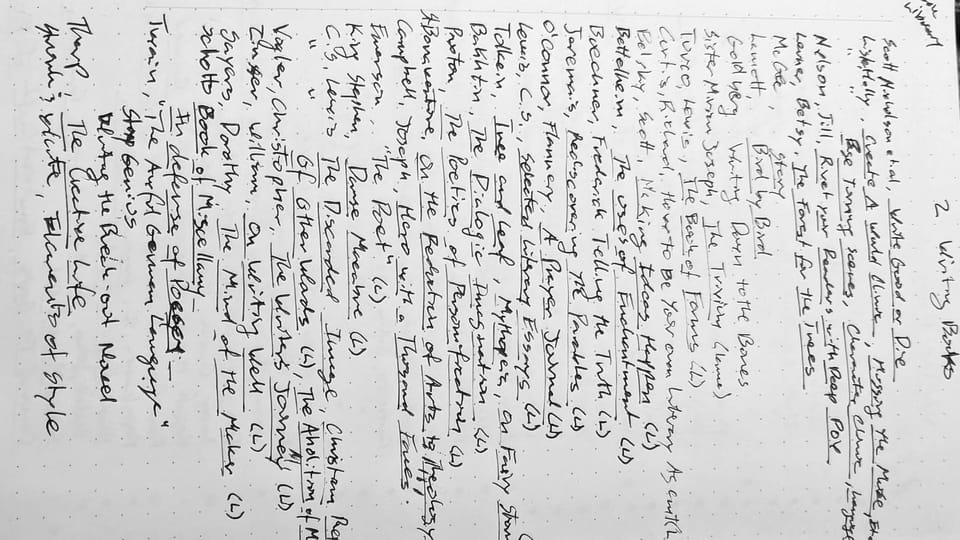 2 Writing Books
Scott Michalson et al, Write Good or Die
Create A Winning
Page Turning Scenes, Character Climax,
Nelson, Jill, Rivet your Readers with Deep POV
Lerner, Betsy. The Forest for the Trees
McGee, Story
Lamott, Bird by Bird
Goldberg Writing Down to the Bones
Sister Miriam Joseph, The Trivium
Turco, Lewis, The Book of Forms (L)
Curtis, Richard, How to Be Your own Literary Agent (L)
Belsky, Scott, Making Ideas Happen (L)
Bettelheim, The uses of Enchantment (L)
Buechner, Frederick Telling the Truth (L)
Jeremias, Rediscovering the Parables (L)
O'Connor, Flannery, A Prayer Journal (L)
Lewis, C.S., Selected Literary Essays (L)
Tolkien, Tree and Leaf, Mythopoeia, on Fairy
Bakhtin, The Dialogic Imagination (L)
Paxson, The Poetics of Personification (L)
Bonaventure, On the Reduction of Arts to Theology
Campbell, Joseph, Hero with a Thousand Faces
Emerson, "The Poet" (L)
King Stephen, Danse Macabre (L)
C.S. Lewis The Discarded Image, Christian
" Of Other Worlds (L), The Abolition of M
Vogler, Christopher, The Writer's Journey (L)
Zinsser, William, On Writing Well (L)
Sayers, Dorothy The Mind of the Maker (L)
Schott's Book of Miscellany
In defense of
Twain, "The Awful German Language"
Writing the Breakout Novel
Tharp: The Creative Life
Strunk & White, Elements of Style